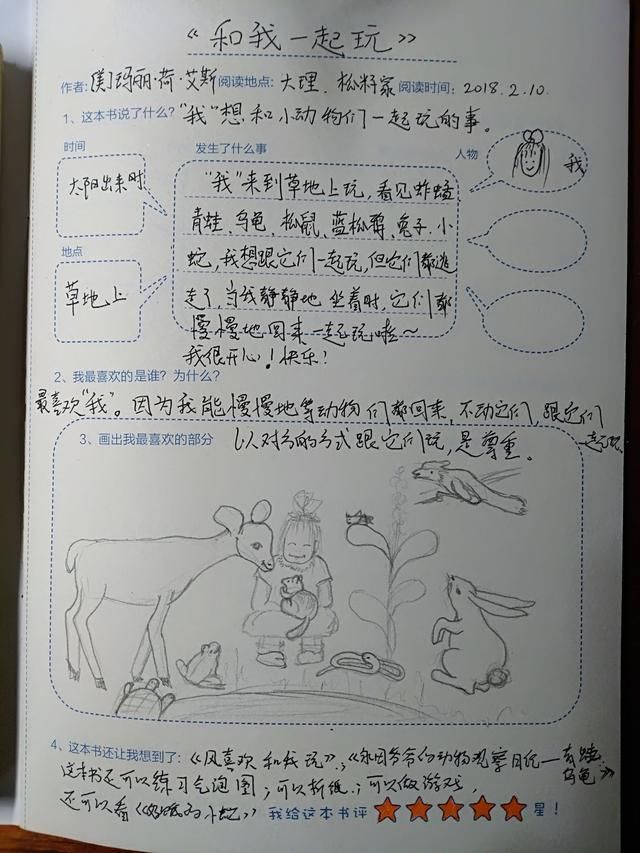 《和我一起玩》
作者：[美]玛丽·荷·艾斯 阅读地点：大理、松籽家 阅读时间：2018.2.10.
1、这本书说了什么？“我”想和小动物们一起玩的事。
时间 发生了什么事 人物
太阳出来时
我
地点
草地上
“我”来到草地上玩，看见蚱蜢
青蛙、乌龟、松鼠、蓝松鸦、兔子、小
蛇，我想跟它们一起玩，但它们都逃
走了，当我静静地坐着时，它们都
慢慢地回来一起玩啦～
我很开心！快乐！
2、我最喜欢的是谁？为什么？
最喜欢“我”。因为我能慢慢地等动物们都回来，不动它们，跟它们
一起玩
3、画出我最喜欢的部分 以对方的方式跟它们玩，是尊重。
4、这本书还让我想到了：《风喜欢和我玩》；《永田爷爷的动物观察日记—青蛙
乌龟》
这本书还可以练习气泡图；可以折纸；可以做游戏，
还可以看《奶奶的小蛇》 我给这本书评 星！